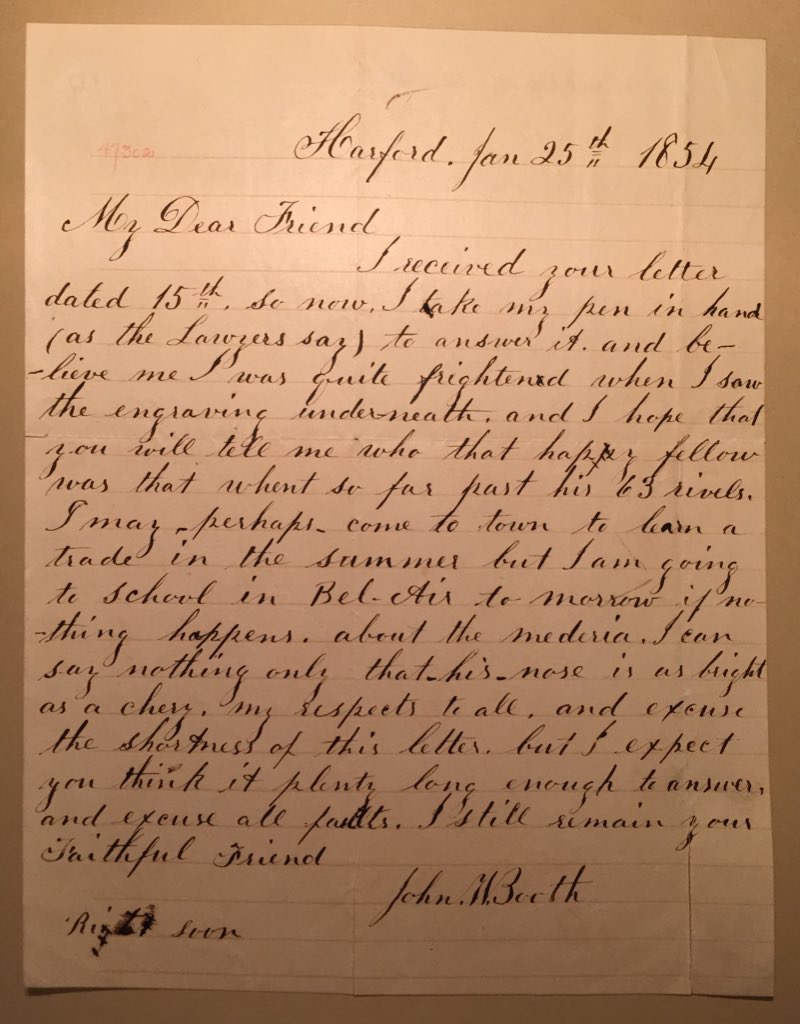 47302
Harford. Jan 25th 1854
My Dear Friend
I received your letter
dated 15th. so now. I take my pen in hand
(as the Lawyers say) to answer it. and be-
-lieve me I was quite frightened when I saw
the engraving under-neath. and I hope that
you will tell me who that happy fellow
was that whent so far past his 63 rivels.
I may - perhaps - come to town to learn a
trade in the summer but I am going
to school in Bel-Air to morrow if no-
-thing happens. about the mederia. I can
say nothing only that - his - nose is as bright
as a chery. my respects to all. and excuse
the shortness of this letter. but I expect
you think it plenty long enough to answer.
and excuse all faults. I still remain your
Faithful Friend
John. W. Booth
soon